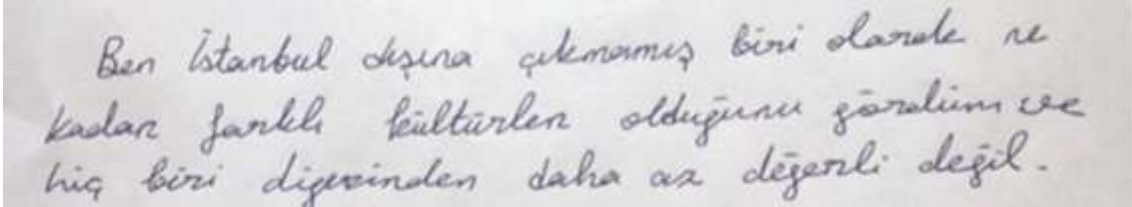 Ben İstanbul dışına çıkmamış biri olarak ne
kadar farklı kültürler olduğunu gördüm ve
hiç biri digerinden daha az değerli değil.